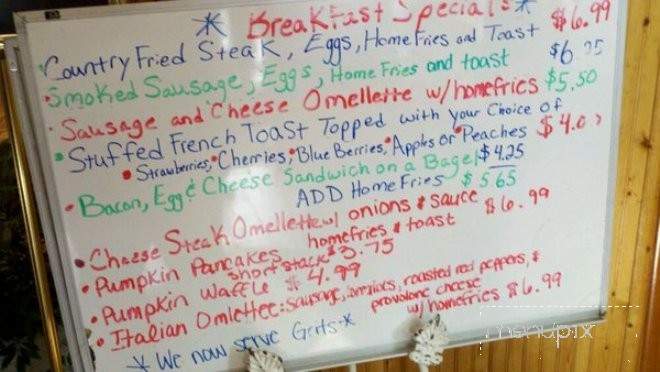 * Breakfast Specials *
Country Fried Steak, Eggs, Home Fries and Toast $6.99
• Smoked Sausage, Eggs, Home Fries and toast $6
• Sausage and Cheese Omellette w/homefries $5.50
• Stuffed French Toast Topped with your Choice of
• Strawberries, • Cherries, • Blue Berries, • Apples or • Peaches $4.0
• Bacon, Egg & Cheese Sandwich on a Bagel $4.25
ADD Home Fries $5.65
• Cheese Steak Omellette w/ onions & sauce $6.99
homefries & toast
• Pumpkin Pancakes short stack $3.75
• Pumpkin Waffle $4.99
• Italian Omlettee: sausage, roasted red peppers, &
provolone cheese
w/homefries $6.99
* We now serve Grits *
menupix